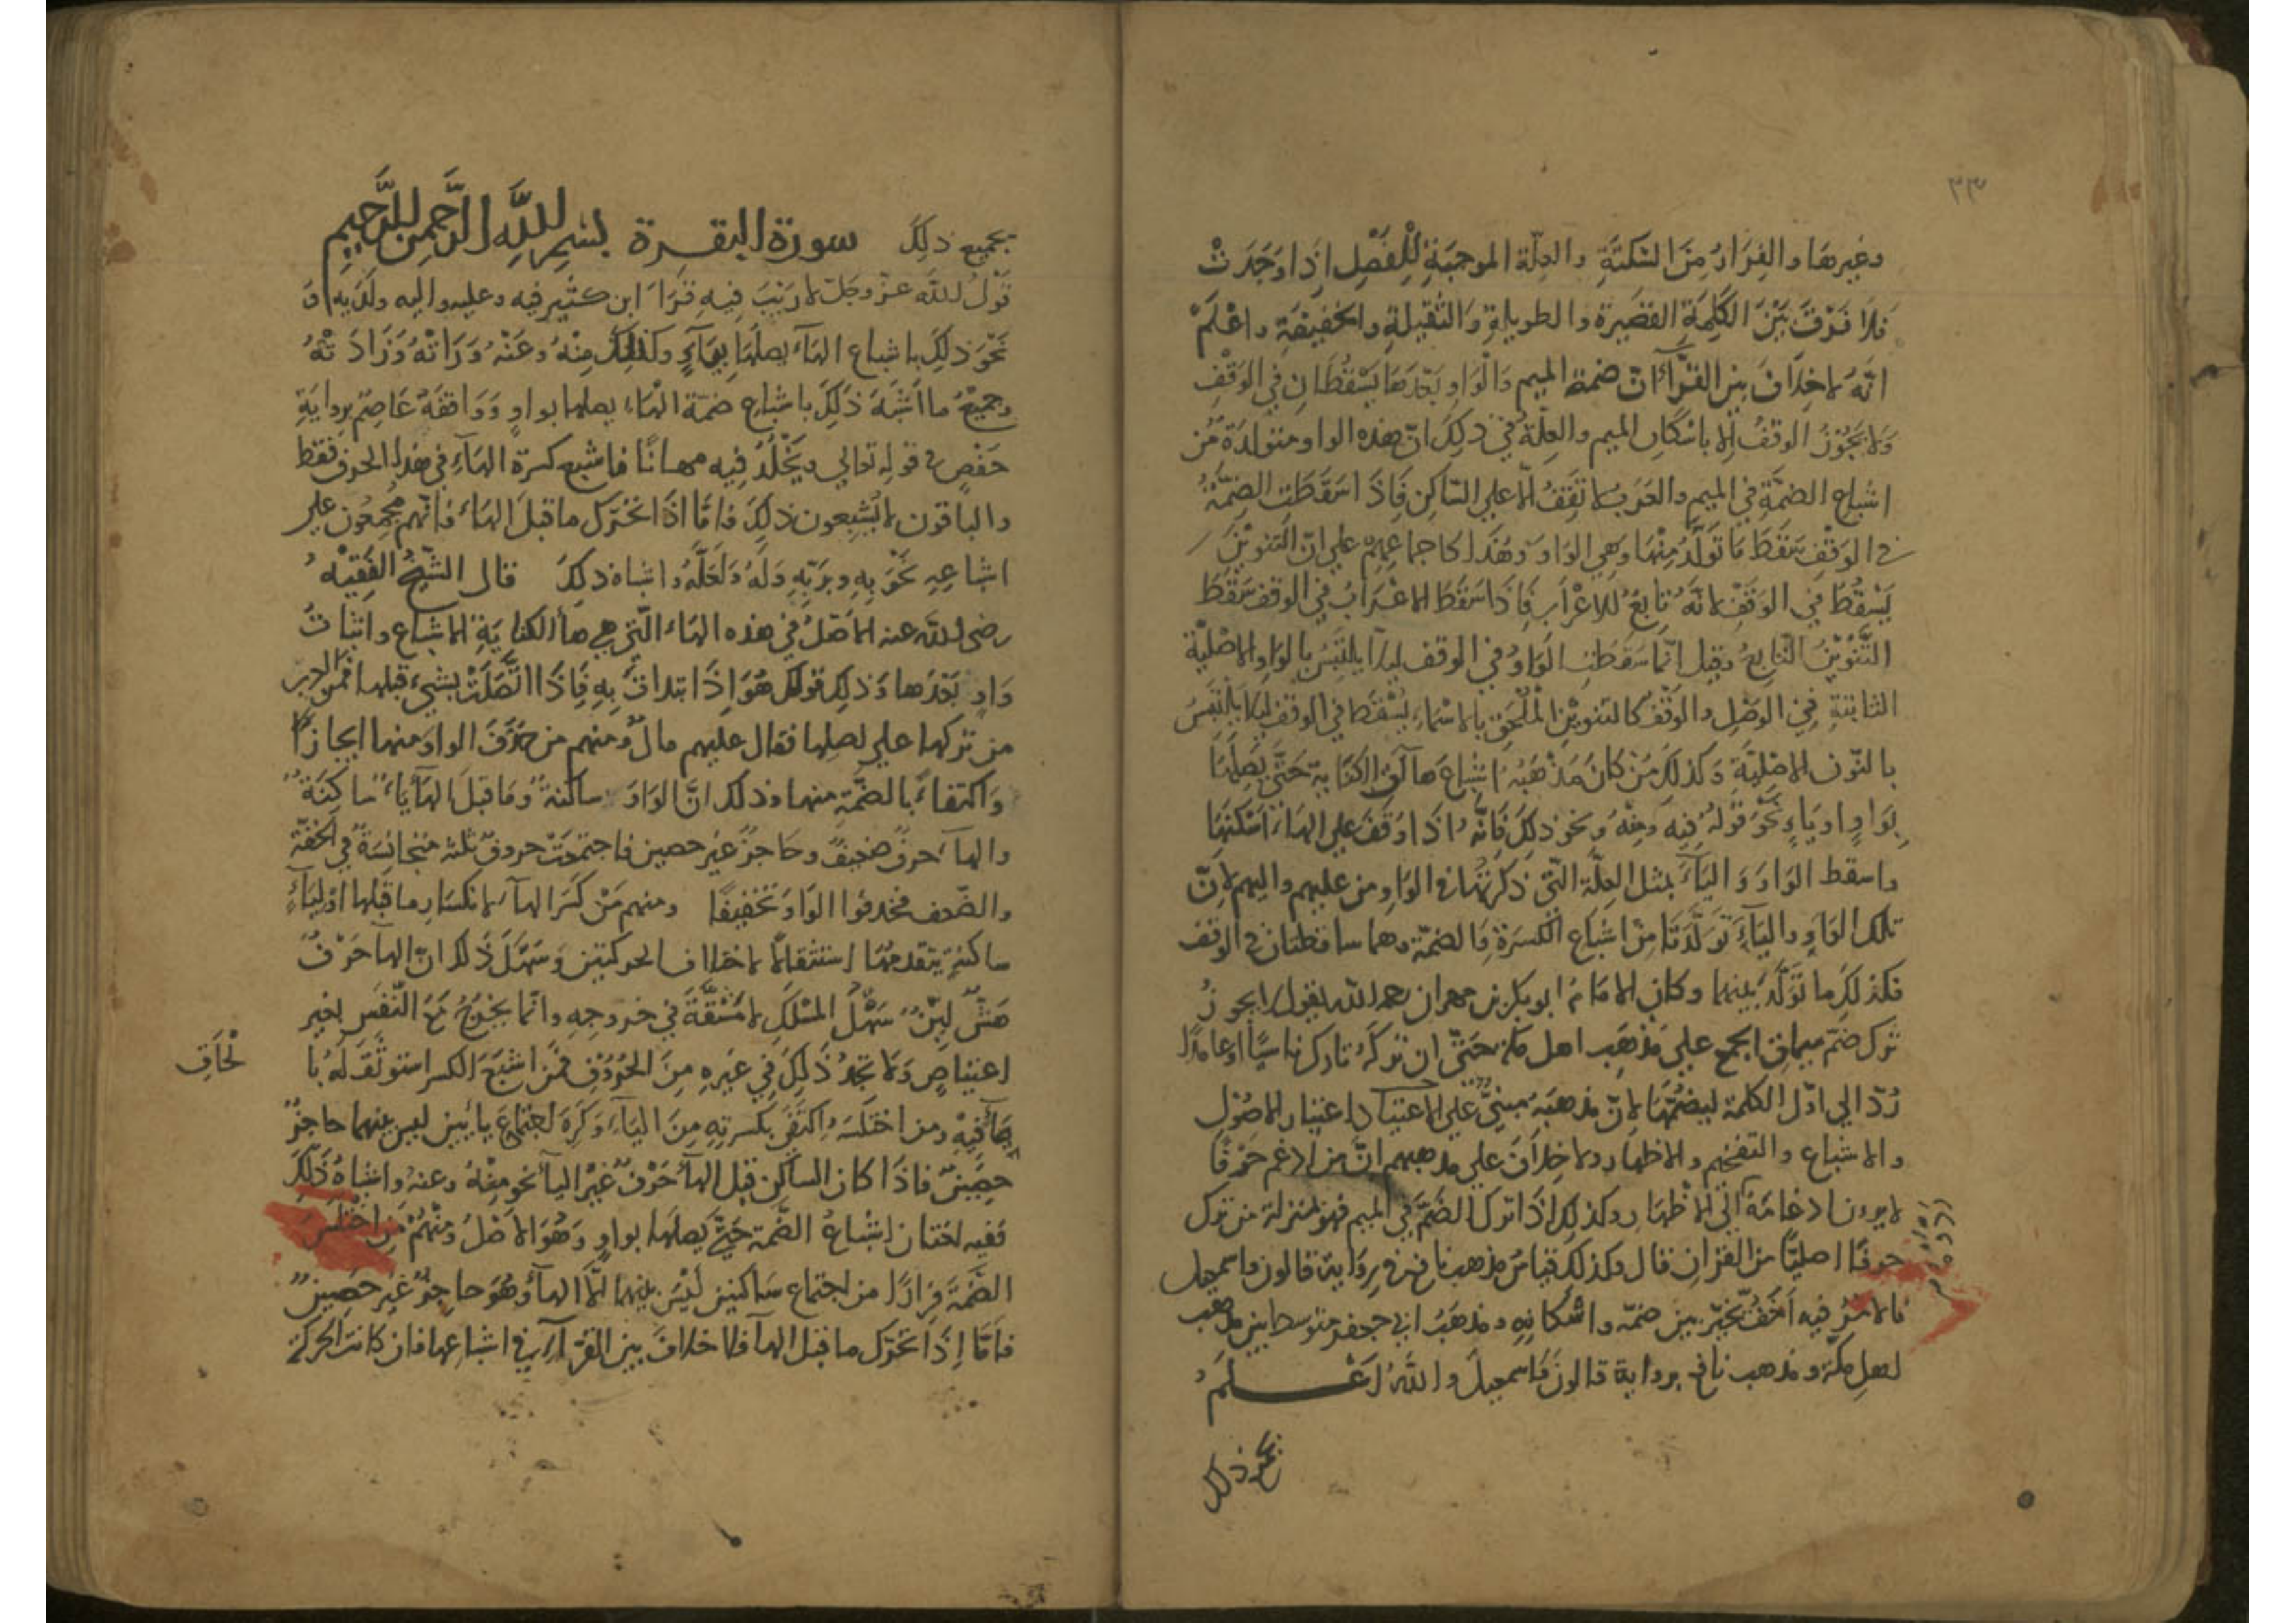 ٣٣
وغيرها والفرار من السكتة والعلة الموجبة للفصل اذا وجدت
فلا فرق بين الكلمة القصيرة والطويلة والثقيلة والخفيفة واعلم
انه لا خلاف بين القرّاء انّ ضمة الميم والواو بعدها يسقطان في الوقف
ولا يجوز الوقف الا باسكان الميم والعلة في ذلك انّ هذه الواو متولدة من
اشباع الضمة في الميم والعرب لا تقف الا على الساكن فاذا سقطت الضمة
في الوقف سقط ما تولد منها وهي الواو وهذا كاجماعهم على انّ التنوين
يسقط في الوقف لانه تابع للاعراب فاذا سقط الاعراب في الوقف سقط
التنوين التابع وقيل انما سقطت الواو في الوقف ليلا يلتبس بالواو الاصلية
الثابتة في الوصل والوقف كالتنوين الملحق بالاسماء يسقط في الوقف ليلا يلتبس
بالنون الاصلية وكذلك من كان مذهبه اشباع هاء الكناية حتى يصلها
بواو او ياء نحو قوله فيه ومنه ونحو ذلك فانه اذا وقف على الهاء اسكنها
واسقط الواو والياء بمثل العلة التي ذكرتها في الواو من عليهم واليهم لانّ
تلك الواو والياء تولدتا من اشباع الكسرة والضمة وهما ساقطتان في الوقف
فكذلك ما تولد منهما وكان الامام ابو بكر بن مهران رحمه الله يقول لا يجوز
ترك ضم ميمات الجمع على مذهب اهل مكة حتى ان تركه تارك ناسيا او عامدا
ردّ الى اول الكلمة ليضمها لانّ مذهبه مبنيّ على الاعتياد واعتبار الاصول
والاشباع والتفخيم والاظهار ولا خلاف على مذهبهم انّ من ادغم حرفا
لا يرون ادغامه الى الاظهار وكذلك اذا ترك الضم في الميم فهو بمنزلة من ترك
حرفا اصليا من القران قال وكذلك قياس مذهب نافع في رواية قالون واسمعيل
فالامر فيه اخف يخير بين ضمه واسكانه ومذهب ابي جعفر متوسط بين مذهب
اهل مكة ومذهب نافع برواية قالون واسمعيل والله اعلم
بجميع ذلك
بجميع ذلك سورة البقرة بسم الله الرحمن الرحيم
قول الله عز وجل لا ريب فيه قرا ابن كثير فيه وعليه واليه ولديه او
نحو ذلك باشباع الهاء يصلها بياء وكذلك منه وعنه وراته وزادته
وجميع ما اشبه ذلك باشباع ضمة الهاء يصلها بواو ووافقه عاصم برواية
حفص في قوله تعالى ويخلد فيه مهانا فاشبع كسرة الهاء في هذا الحرف فقط
والباقون لا يشبعون ذلك فامّا اذا تحرك ما قبل الهاء فانهم مجمعون على
اشباعه نحو به وبربه وله ولعله واشباه ذلك قال الشيخ الفقيه
رضي الله عنه الاصل في هذه الهاء التي هي هاء الكناية الاشباع واثبات
واو بعدها وذلك قولك هو اذا ابتدات به فاذا اتصلت بشيء قبلها فمن العرب
من تركها على اصلها فقال عليهو مال ومنهم من حذف الواو منها ايجازا
واكتفاء بالضمة منها وذلك انّ الواو ساكنة وما قبل الهاء ياء ساكنة
والهاء حرف ضعيف وحاجز غير حصين فاجتمعت حروف ثلثة متجانسة في الخفة
والضعف فحذفوا الواو تخفيفا ومنهم من كسر الهاء لانكسار ما قبلها او لياء
ساكنة يتقدمها استثقالا لاختلاف الحركتين وسهّل ذلك انّ الهاء حرف
هشّ ليّن سهل المسلك لا مشقة في خروجه وانما يخرج مع النفس بغير
اعتياص ولا تجد ذلك في غيره من الحروف فمن اشبع الكسر استوثق له با
لحاق
يهاء فيه ومن اختلسه اكتفى بكسرته من الياء وكره اجتماع ياءين ليس بينهما حاجز
حصين فاذا كان الساكن قبل الهاء حرف غير الياء نحو منه وعنه واشباه ذلك
ففيه لغتان اشباع الضمة حتى يصلها بواو وهو الاصل ومنهم من اختلس
الضمة فرارا من اجتماع ساكنين ليس بينهما الا الهاء وهو حاجز غير حصين
فامّا اذا تحرك ما قبل الهاء فلا خلاف بين القراء في اشباعها فان كانت الحركة